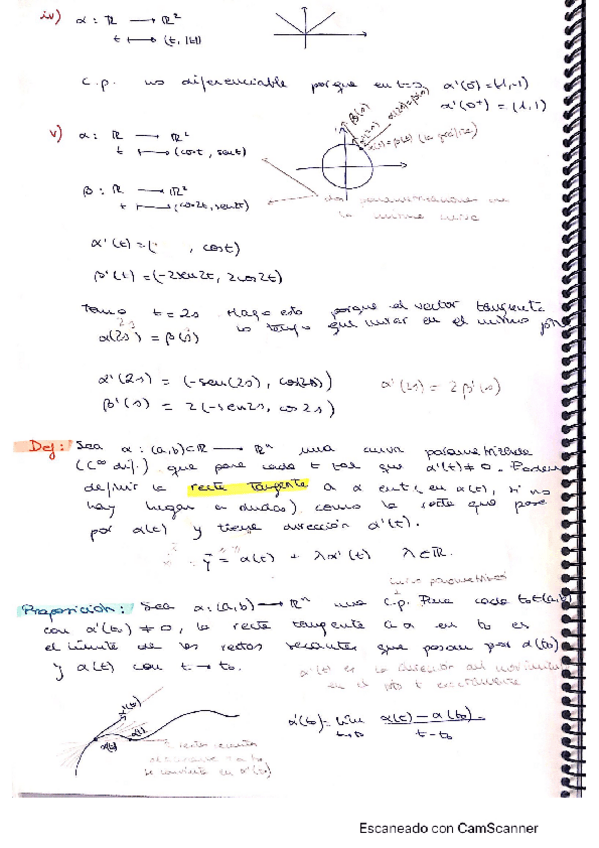 iv) α : ℝ → ℝ²
t ↦ (t, |t|)
c.p. no diferenciable porque en t=0 α'(0⁻)=(1,-1)
α'(0⁺) = (1,1)
v) α : ℝ → ℝ²
t ↦ (cost, sent)
β : ℝ → ℝ²
t ↦ (cos2t, sen2t)
dos parametrizaciones con
la misma curva
α'(t) = ( , cost)
β'(t) = (-2sen2t, 2cos2t)
Tomo t = 2s Hago esto porque el vector tangente
lo tengo que mirar en el mismo
α(2s) = β(s)
α'(2s) = (-sen(2s), cos(2s))
β'(s) = 2(-sen2s, cos2s)
α'(2s) = 2β'(s)
Def: Sea α : (a,b)⊂ℝ → ℝⁿ una curva parametrizada
(C∞ dif.) que para cada t tal que α'(t)≠0. Podemos
definir la recta tangente a α en t (en α(t), si no
hay lugar a dudas) como la recta que pasa
por α(t) y tiene dirección α'(t).
ȳ = α(t) + λα'(t) λ∈ℝ.
curva parametrizada
Proposición: Sea α : (a,b) → ℝⁿ una c.p. Para cada t₀∈(a,b)
con α'(t₀) ≠ 0, la recta tangente a α en t₀ es
el límite de las rectas secantes que pasan por α(t₀)
y α(t) con t → t₀.
α'(t) es la dirección del movimiento
α'(t₀)
α(t₀) α(t)
α'(t₀) = lim α(t) - α(t₀)
t - t₀
Escaneado con CamScanner